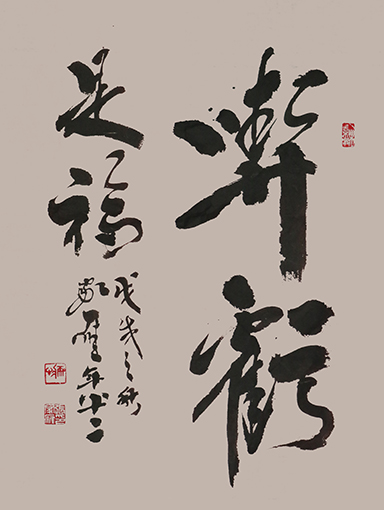 喫虧
是福
戊戌之秋
年八十二